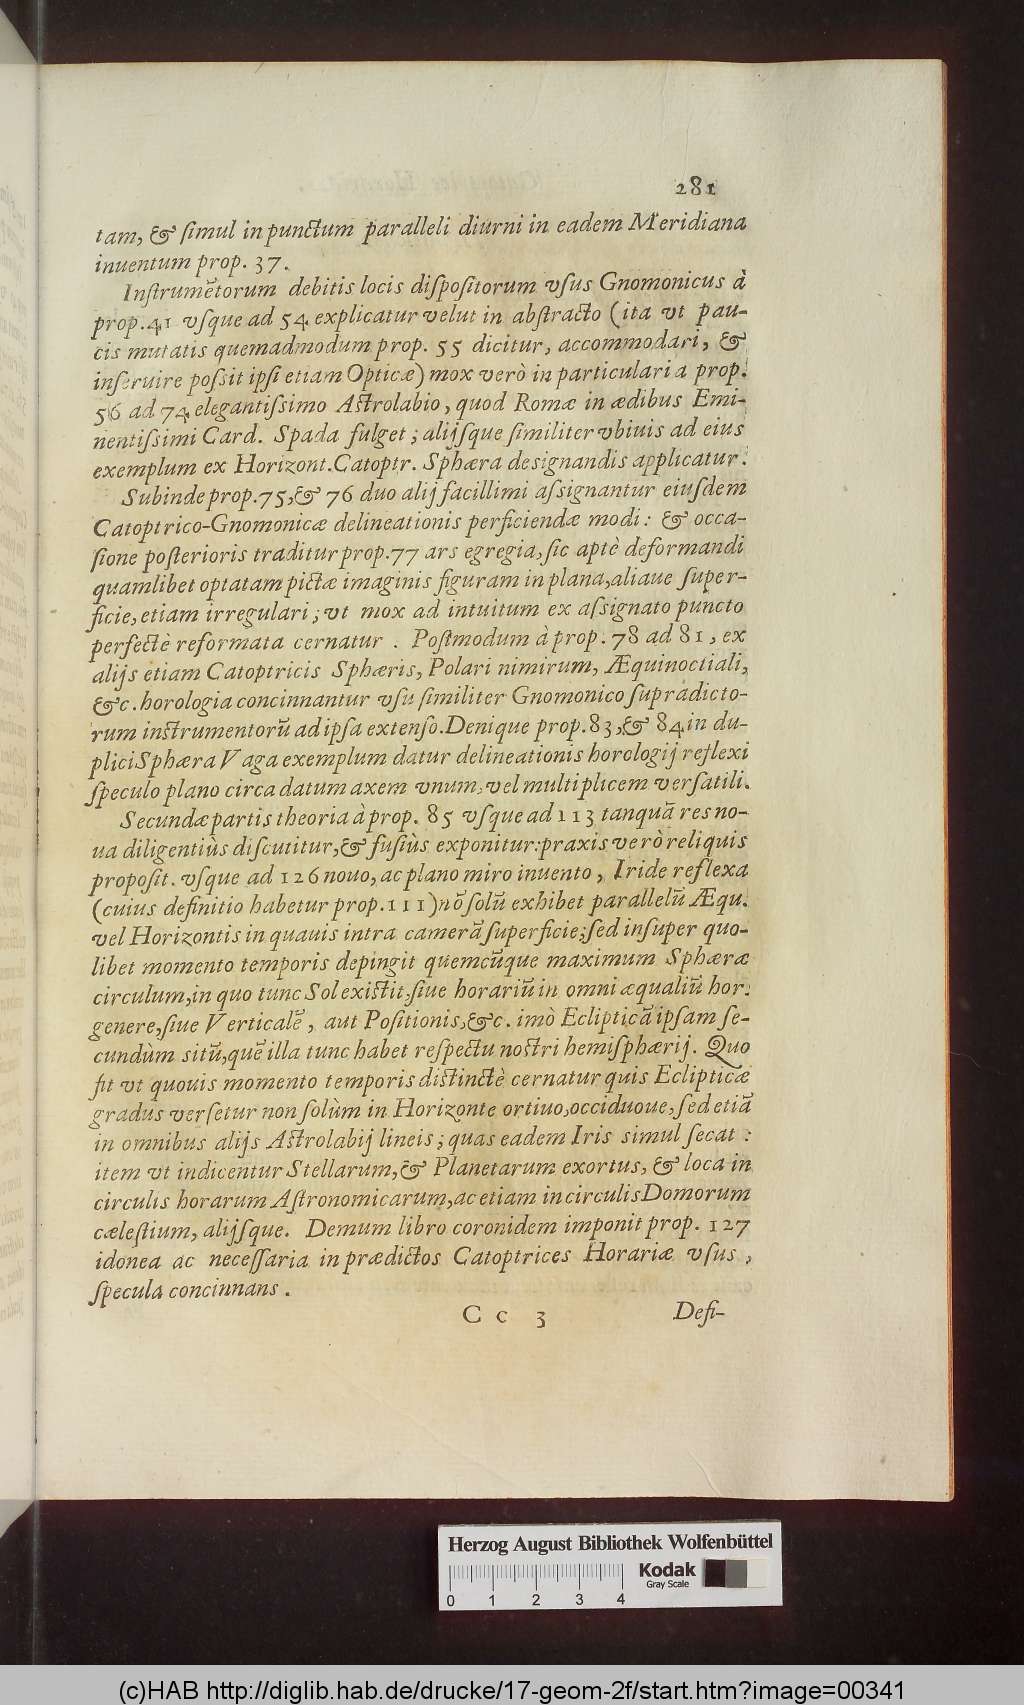 281
tam, & ſimul in punctum paralleli diurni in eadem Meridiana
inuentum prop. 37.
Inſtrumẽtorum debitis locis diſpoſitorum vſus Gnomonicus à
prop. 41 vſque ad 54 explicatur velut in abſtracto (ita vt pau-
cis mutatis quemadmodum prop. 55 dicitur, accommodari, &
inſeruire poſſit ipſi etiam Opticæ) mox verò in particulari a prop.
56 ad 74 elegantiſſimo Aſtrolabio, quod Romæ in ædibus Emi-
nentiſſimi Card. Spada fulget; alijſque ſimiliter vbiuis ad eius
exemplum ex Horizont. Catoptr. Sphæra deſignandis applicatur.
Subinde prop. 75, & 76 duo alij facillimi aſſignantur eiuſdem
Catoptrico-Gnomonicæ delineationis perficiendæ modi: & occa-
ſione poſterioris traditur prop. 77 ars egregia, ſic aptè deformandi
quamlibet optatam pictæ imaginis figuram in plana, aliaue ſuper-
ficie, etiam irregulari; vt mox ad intuitum ex aſſignato puncto
perfectè reformata cernatur. Poſtmodum à prop. 78 ad 81, ex
alijs etiam Catoptricis Sphæris, Polari nimirum, Æquinoctiali,
&c. horologia concinnantur vſu ſimiliter Gnomonico ſupradicto-
rum inſtrumentorũ ad ipſa extenſo. Denique prop. 83, & 84 in du-
plici Sphæra Vaga exemplum datur delineationis horologij reflexi
ſpeculo plano circa datum axem vnum, vel multiplicem verſatili.
Secundæ partis theoria à prop. 85 vſque ad 113 tanquã res no-
ua diligentiùs diſcutitur, & fuſiùs exponitur: praxis verò reliquis
propoſit. vſque ad 126 nouo, ac plano miro inuento, Iride reflexa
(cuius definitio habetur prop. 111) nõ ſolũ exhibet parallelũ Æqu.
vel Horizontis in quauis intra camerã ſuperficie; ſed inſuper quo-
libet momento temporis depingit quemcũque maximum Sphæræ
circulum, in quo tunc Sol exiſtit, ſiue horariũ in omni æqualiũ hor.
genere, ſiue Verticalẽ, aut Poſitionis, &c. imò Eclipticã ipſam ſe-
cundùm ſitũ, quẽ illa tunc habet reſpectu noſtri hemiſphærij. Quo
fit vt quouis momento temporis diſtinctè cernatur quis Eclipticæ
gradus verſetur non ſolùm in Horizonte ortiuo, occiduoue, ſed etiã
in omnibus alijs Aſtrolabij lineis; quas eadem Iris ſimul ſecat:
item vt indicentur Stellarum, & Planetarum exortus, & loca in
circulis horarum Aſtronomicarum, ac etiam in circulis Domorum
cæleſtium, alijſque. Demum libro coronidem imponit prop. 127
idonea ac neceſſaria in prædictos Catoptrices Horariæ vſus,
ſpecula concinnans.
Cc 3 Defi-
Herzog August Bibliothek Wolfenbüttel
Kodak
Gray Scale
0 1 2 3 4
(c)HAB http://diglib.hab.de/drucke/17-geom-2f/start.htm?image=00341